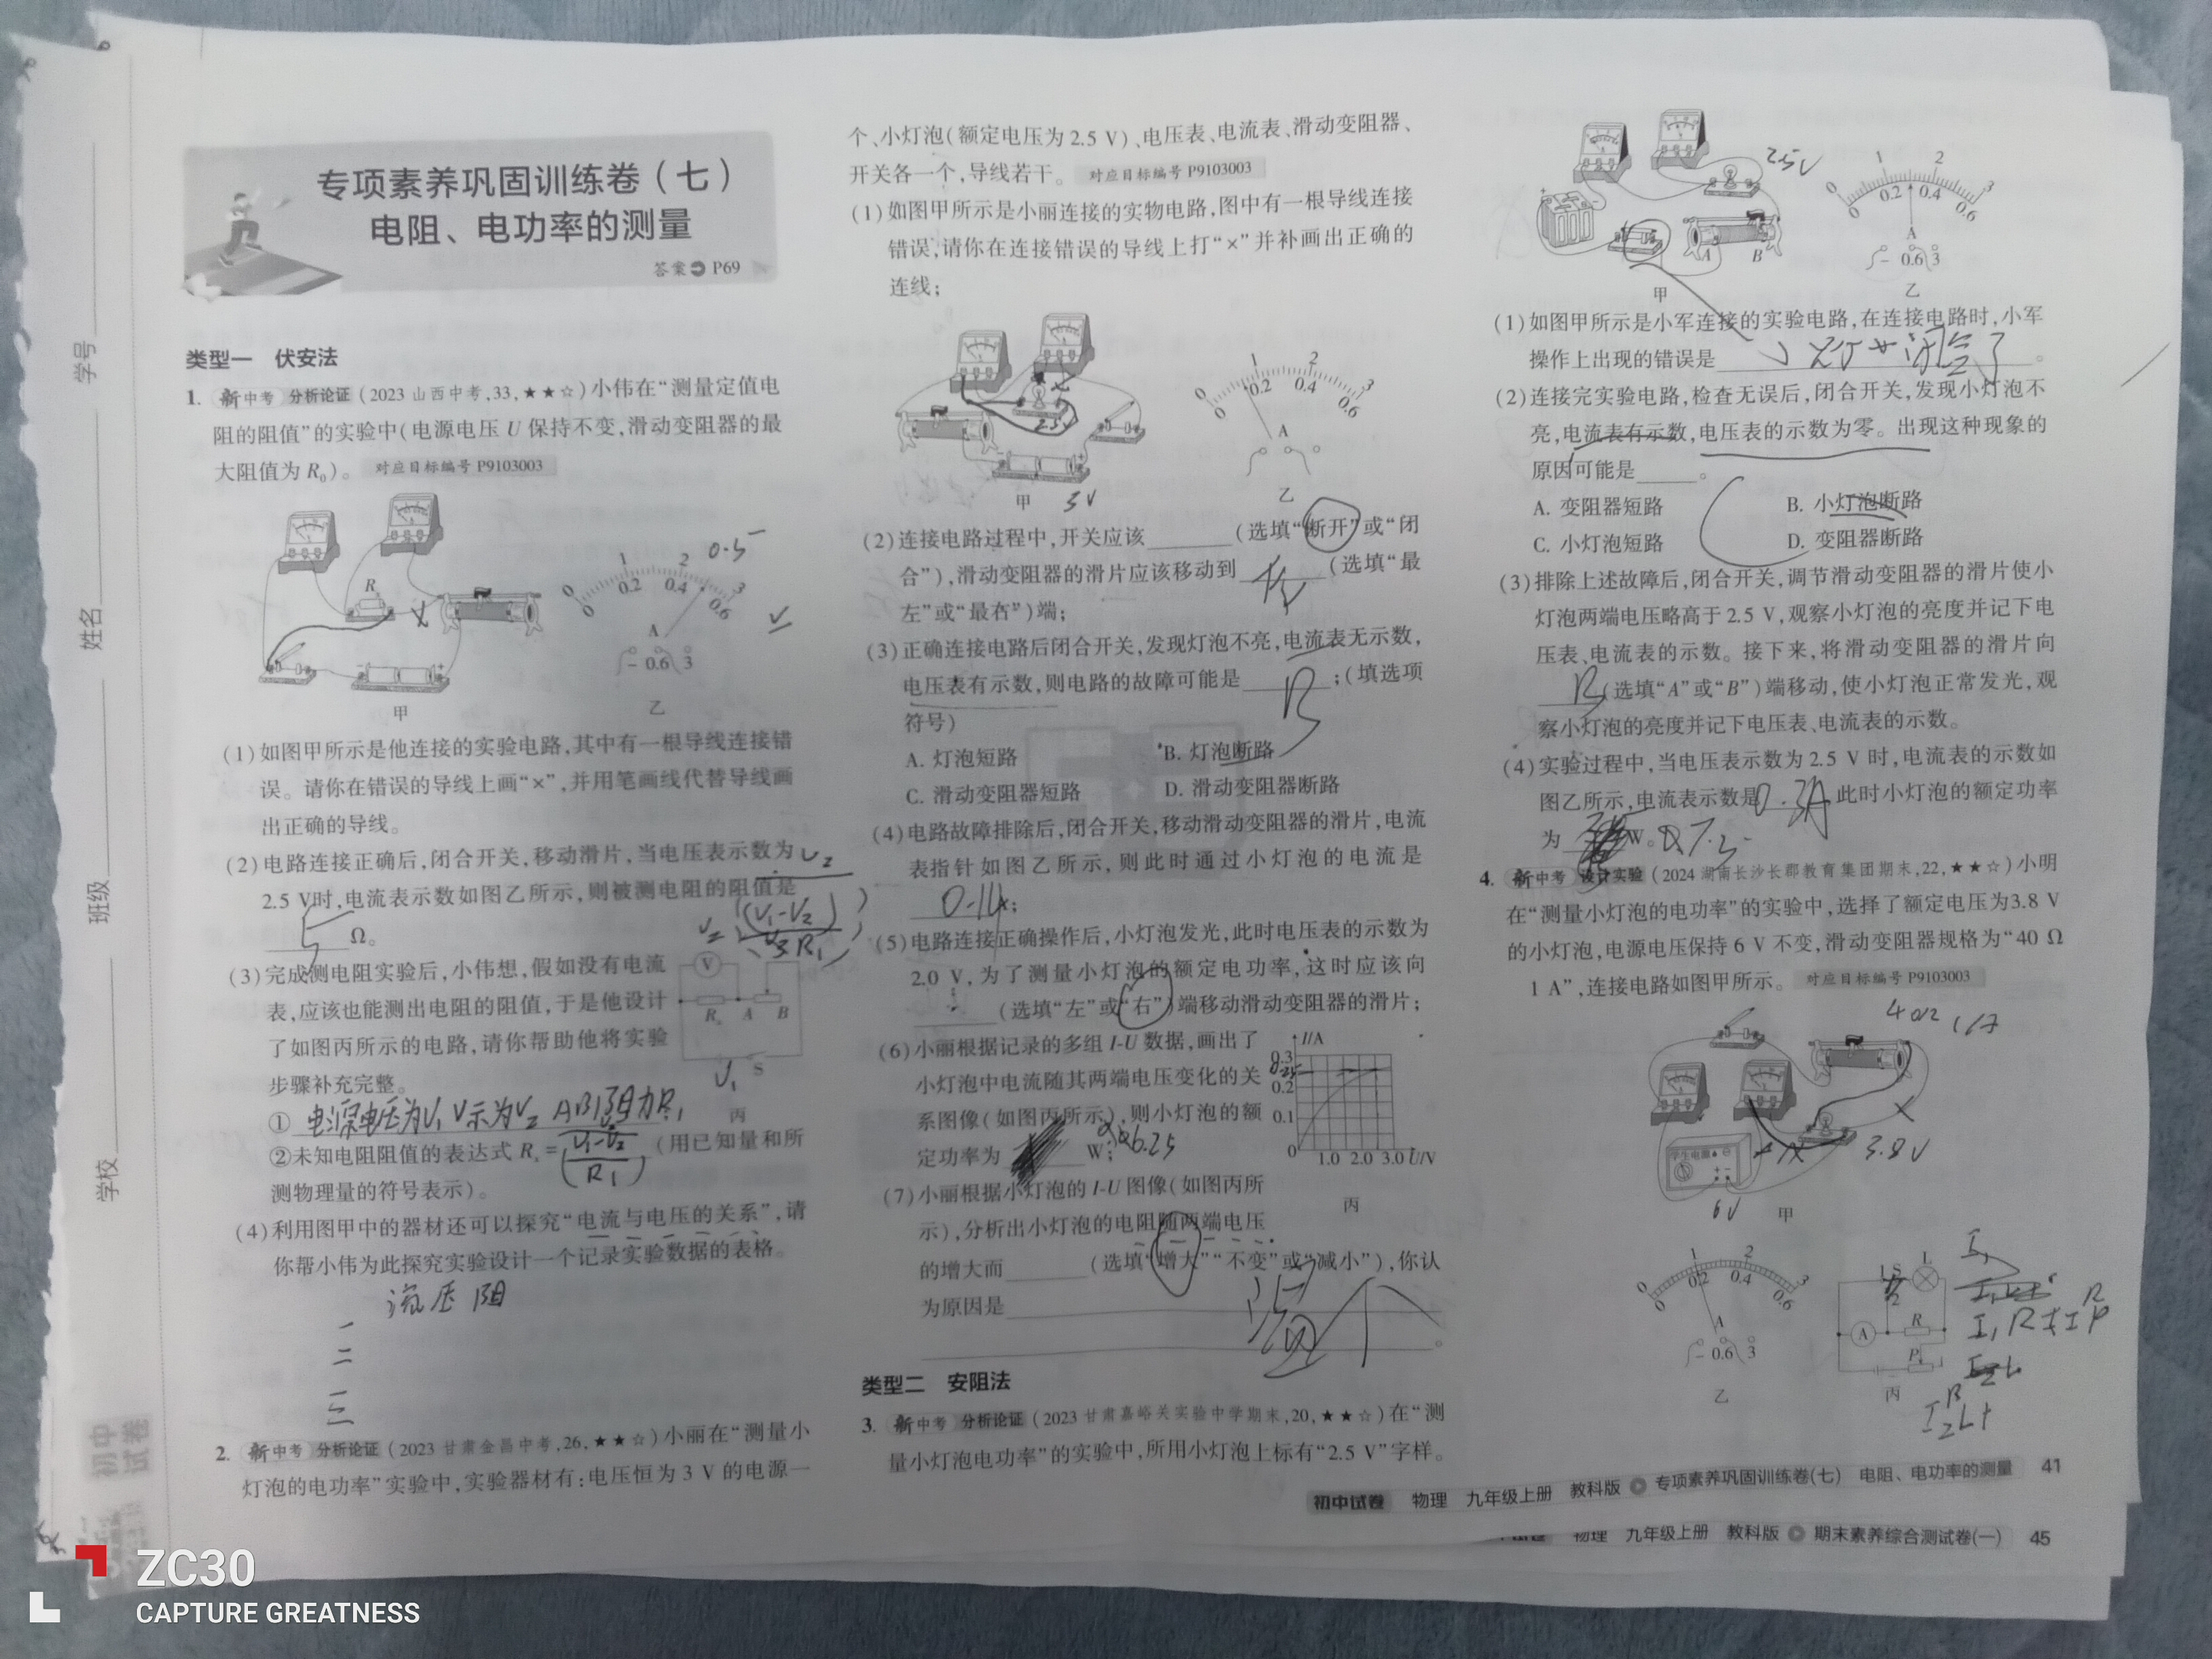 专项素养巩固训练卷(七)
电阻、电功率的测量
答案 P69
类型一 伏安法
1. 新中考 分析论证 (2023 山西中考,33,★★☆)小伟在“测量定值电
阻的阻值”的实验中(电源电压 U 保持不变,滑动变阻器的最
大阻值为 R₀)。 对应目标编号 P9103003
R
0.5
0 1 2 3
0 0.2 0.4 0.6
A
- 0.6 3
甲
乙
(1)如图甲所示是他连接的实验电路,其中有一根导线连接错
误。请你在错误的导线上画“×”,并用笔画线代替导线画
出正确的导线。
(2)电路连接正确后,闭合开关,移动滑片,当电压表示数为
2.5 V时,电流表示数如图乙所示,则被测电阻的阻值是
5 Ω。
(3)完成测电阻实验后,小伟想,假如没有电流
表,应该也能测出电阻的阻值,于是他设计
了如图丙所示的电路,请你帮助他将实验
步骤补充完整。
V
Rₓ A B
S
丙
① 电源电压为V₁ V示为V₂ AB阻力R₁
②未知电阻阻值的表达式 Rₓ= (用已知量和所
测物理量的符号表示)。
(4)利用图甲中的器材还可以探究“电流与电压的关系”,请
你帮小伟为此探究实验设计一个记录实验数据的表格。
流 压 阻
一
二
三
2. 新中考 分析论证 (2023 甘肃金昌中考,26,★★☆)小丽在“测量小
灯泡的电功率”实验中,实验器材有:电压恒为 3 V 的电源一
个、小灯泡(额定电压为 2.5 V)、电压表、电流表、滑动变阻器、
开关各一个,导线若干。 对应目标编号 P9103003
(1)如图甲所示是小丽连接的实物电路,图中有一根导线连接
错误,请你在连接错误的导线上打“×”并补画出正确的
连线;
0 1 2 3
0 0.2 0.4 0.6
A
甲
3V
乙
(2)连接电路过程中,开关应该 (选填“断开”或“闭
合”),滑动变阻器的滑片应该移动到 左 (选填“最
左”或“最右”)端;
(3)正确连接电路后闭合开关,发现灯泡不亮,电流表无示数,
电压表有示数,则电路的故障可能是 B ;(填选项
符号)
A. 灯泡短路 B. 灯泡断路
C. 滑动变阻器短路 D. 滑动变阻器断路
(4)电路故障排除后,闭合开关,移动滑动变阻器的滑片,电流
表指针如图乙所示,则此时通过小灯泡的电流是
;
(5)电路连接正确操作后,小灯泡发光,此时电压表的示数为
2.0 V,为了测量小灯泡的额定电功率,这时应该向
(选填“左”或“右”)端移动滑动变阻器的滑片;
(6)小丽根据记录的多组 I-U 数据,画出了
小灯泡中电流随其两端电压变化的关
系图像(如图丙所示),则小灯泡的额
定功率为 W;
I/A
0.3
0.2
0.1
0 1.0 2.0 3.0 U/V
丙
(7)小丽根据小灯泡的 I-U 图像(如图丙所
示),分析出小灯泡的电阻随两端电压
的增大而 (选填“增大”“不变”或“减小”),你认
为原因是
。
类型二 安阻法
3. 新中考 分析论证 (2023 甘肃嘉峪关实验中学期末,20,★★☆)在“测
量小灯泡电功率”的实验中,所用小灯泡上标有“2.5 V”字样。
2.5V
A B
甲
0 1 2 3
0 0.2 0.4 0.6
A
- 0.6 3
乙
(1)如图甲所示是小军连接的实验电路,在连接电路时,小军
操作上出现的错误是 。
(2)连接完实验电路,检查无误后,闭合开关,发现小灯泡不
亮,电流表有示数,电压表的示数为零。出现这种现象的
原因可能是 。
A. 变阻器短路 B. 小灯泡断路
C. 小灯泡短路 D. 变阻器断路
(3)排除上述故障后,闭合开关,调节滑动变阻器的滑片使小
灯泡两端电压略高于 2.5 V,观察小灯泡的亮度并记下电
压表、电流表的示数。接下来,将滑动变阻器的滑片向
B (选填“A”或“B”)端移动,使小灯泡正常发光,观
察小灯泡的亮度并记下电压表、电流表的示数。
(4)实验过程中,当电压表示数为 2.5 V 时,电流表的示数如
图乙所示,电流表示数是 0.3A ,此时小灯泡的额定功率
为 W。
4. 新中考 设计实验 (2024 湖南长沙长郡教育集团期末,22,★★☆)小明
在“测量小灯泡的电功率”的实验中,选择了额定电压为3.8 V
的小灯泡,电源电压保持 6 V 不变,滑动变阻器规格为“40 Ω
1 A”,连接电路如图甲所示。 对应目标编号 P9103003
40Ω 1A
学生电源
3.8V
6V 甲
0 1 2 3
0 0.2 0.4 0.6
A
- 0.6 3
乙
L
S
1
2
A R
P
丙
初中试卷 物理 九年级上册 教科版 专项素养巩固训练卷(七) 电阻、电功率的测量 41
物理 九年级上册 教科版 期末素养综合测试卷(一) 45
学号
姓名
班级
学校
初中试卷
ZC30
CAPTURE GREATNESS